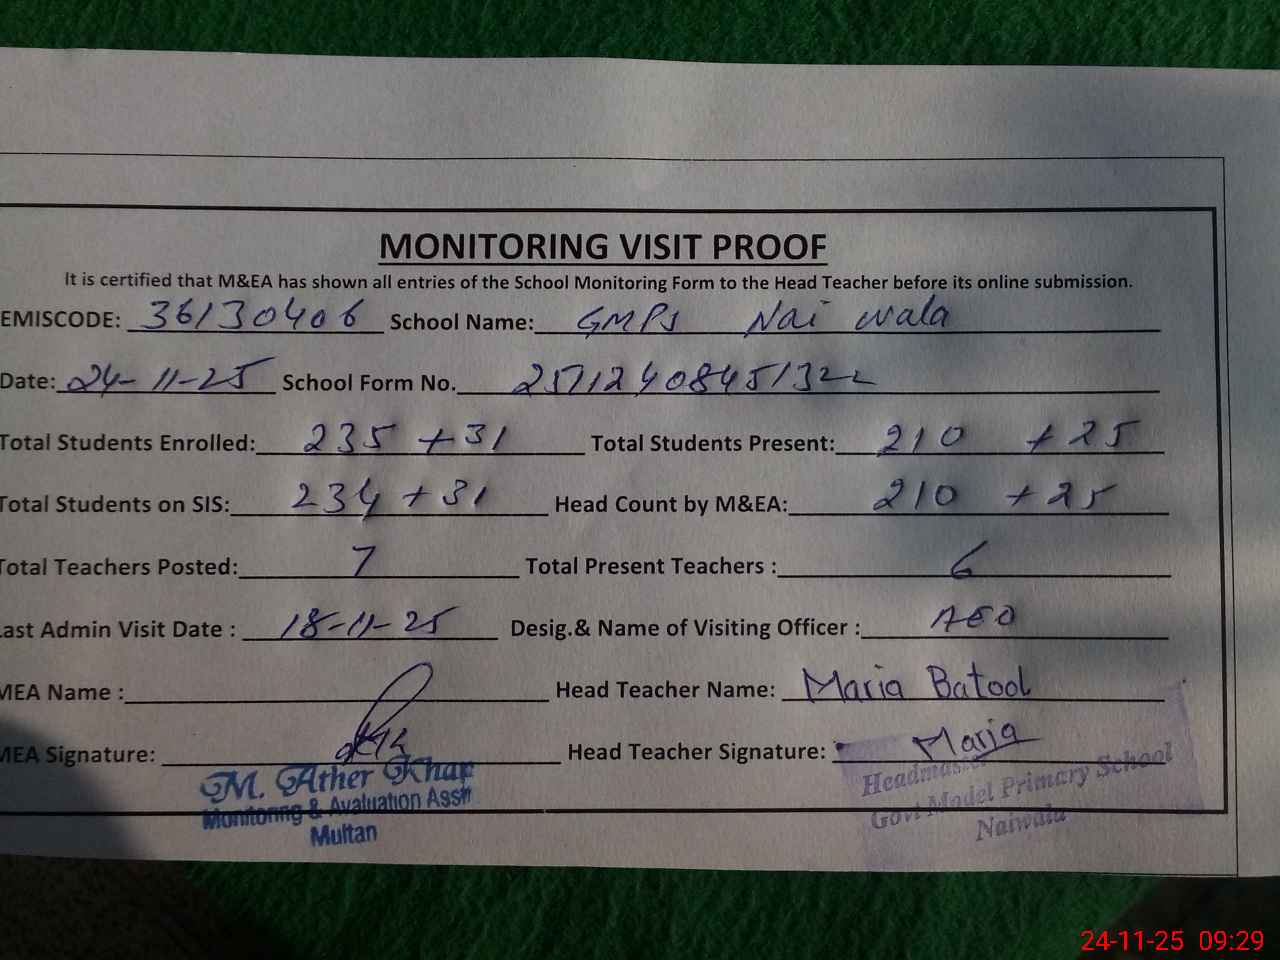 MONITORING VISIT PROOF
It is certified that M&EA has shown all entries of the School Monitoring Form to the Head Teacher before its online submission.
EMISCODE: 36130406 School Name: GMPS Nai wala
Date: 24-11-25 School Form No. 25712408451322
Total Students Enrolled: 235 +31 Total Students Present: 210 +25
Total Students on SIS: 234 +31 Head Count by M&EA: 210 +25
Total Teachers Posted: 7 Total Present Teachers : 6
Last Admin Visit Date : 18-11-25 Desig.& Name of Visiting Officer : AEO
MEA Name : Head Teacher Name: Maria Batool
MEA Signature: Head Teacher Signature: Maria
M. Ather Khan
Monitoring & Avaluation Asstt
Multan
Headmaster
Govt Model Primary School
Naiwala
24-11-25 09:29